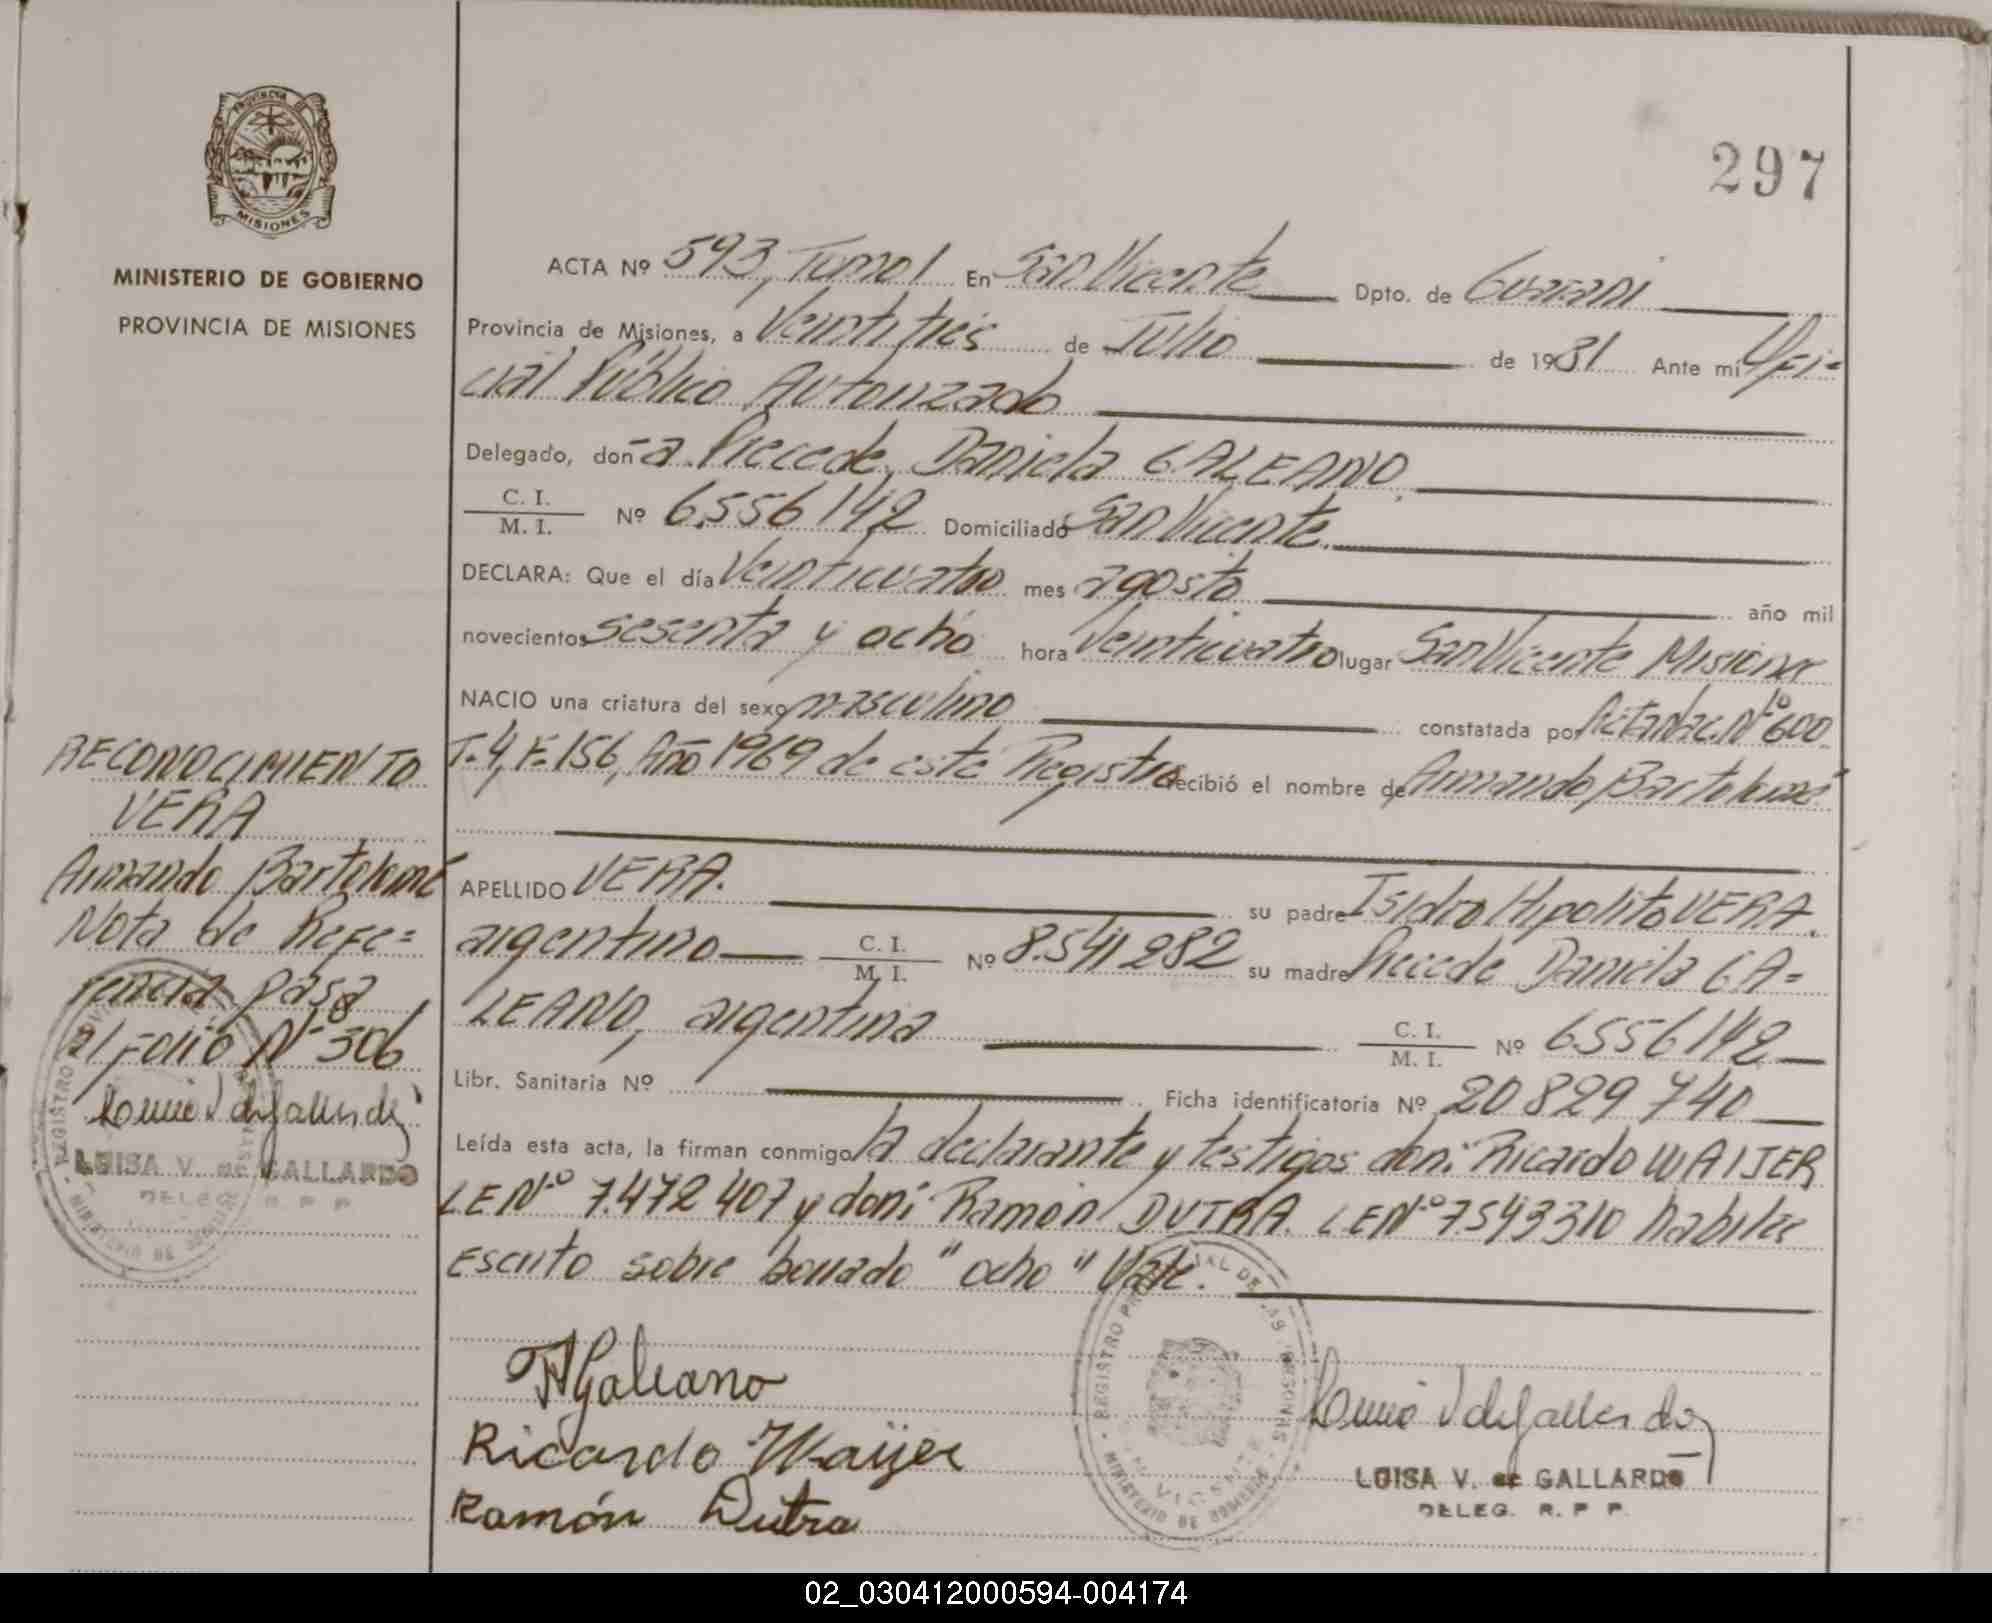 297
PROVINCIA DE
MISIONES
MINISTERIO DE GOBIERNO
PROVINCIA DE MISIONES
ACTA Nº 593, Tomo I En San Vicente Dpto. de Guaraní
Provincia de Misiones, a Veintitrés de Julio de 1981 Ante mí Ofi=
cial Público Autorizado
Delegado, doña Daniela GALEANO,
C. I.
M. I. Nº 6.556142 Domiciliado San Vicente.
DECLARA: Que el día Veinticuatro mes agosto año mil
novecientos sesenta y ocho hora Veinticuatro lugar San Vicente Misiones
NACIO una criatura del sexo masculino constatada por Acta Nac. Nº 600
T. 4, F. 156, Año 1969 de este Registro recibió el nombre de Armando Bartolomé
APELLIDO VERA. su padre Isidro Hipolito VERA.
argentino C. I.
M. I. Nº 8.541282 su madre Daniela GA=
LEANO, argentina C. I.
M. I. Nº 6556142
Libr. Sanitaria Nº Ficha identificatoria Nº 20829740
Leída esta acta, la firman conmigo la declarante y testigos don: Ricardo WAIJER
LE Nº 7.472407 y don: Ramón DUTRA. LE Nº 7.543310 habiles
Escrito sobre borrado "ocho" Vale.
RECONOCIMIENTO
VERA
Armando Bartolomé
Nota de Refe=
rencia pasa
al Folio Nº 306
LUISA V. de GALLARDO
DELEG. R. P. P.
Galeano
Ricardo Waijer
Ramón Dutra
LUISA V. de GALLARDO
DELEG. R. P. P.
02_030412000594-004174